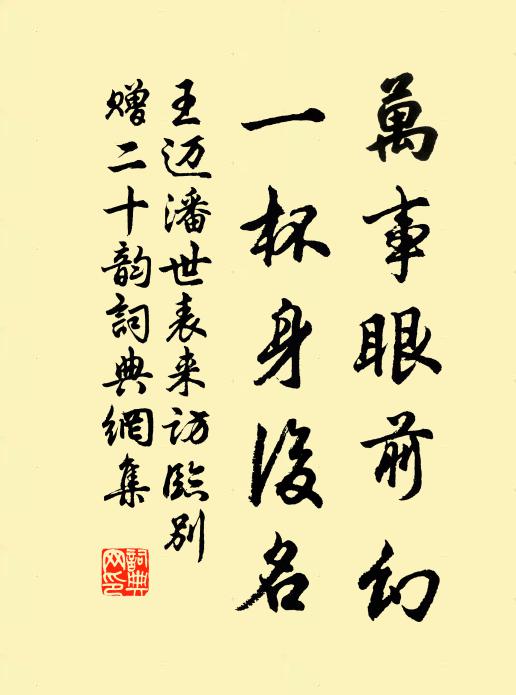 萬事眼前幻
一杯身後名
王迈潘世表来访臨别
赠二十韵詞典網集
詞典網印